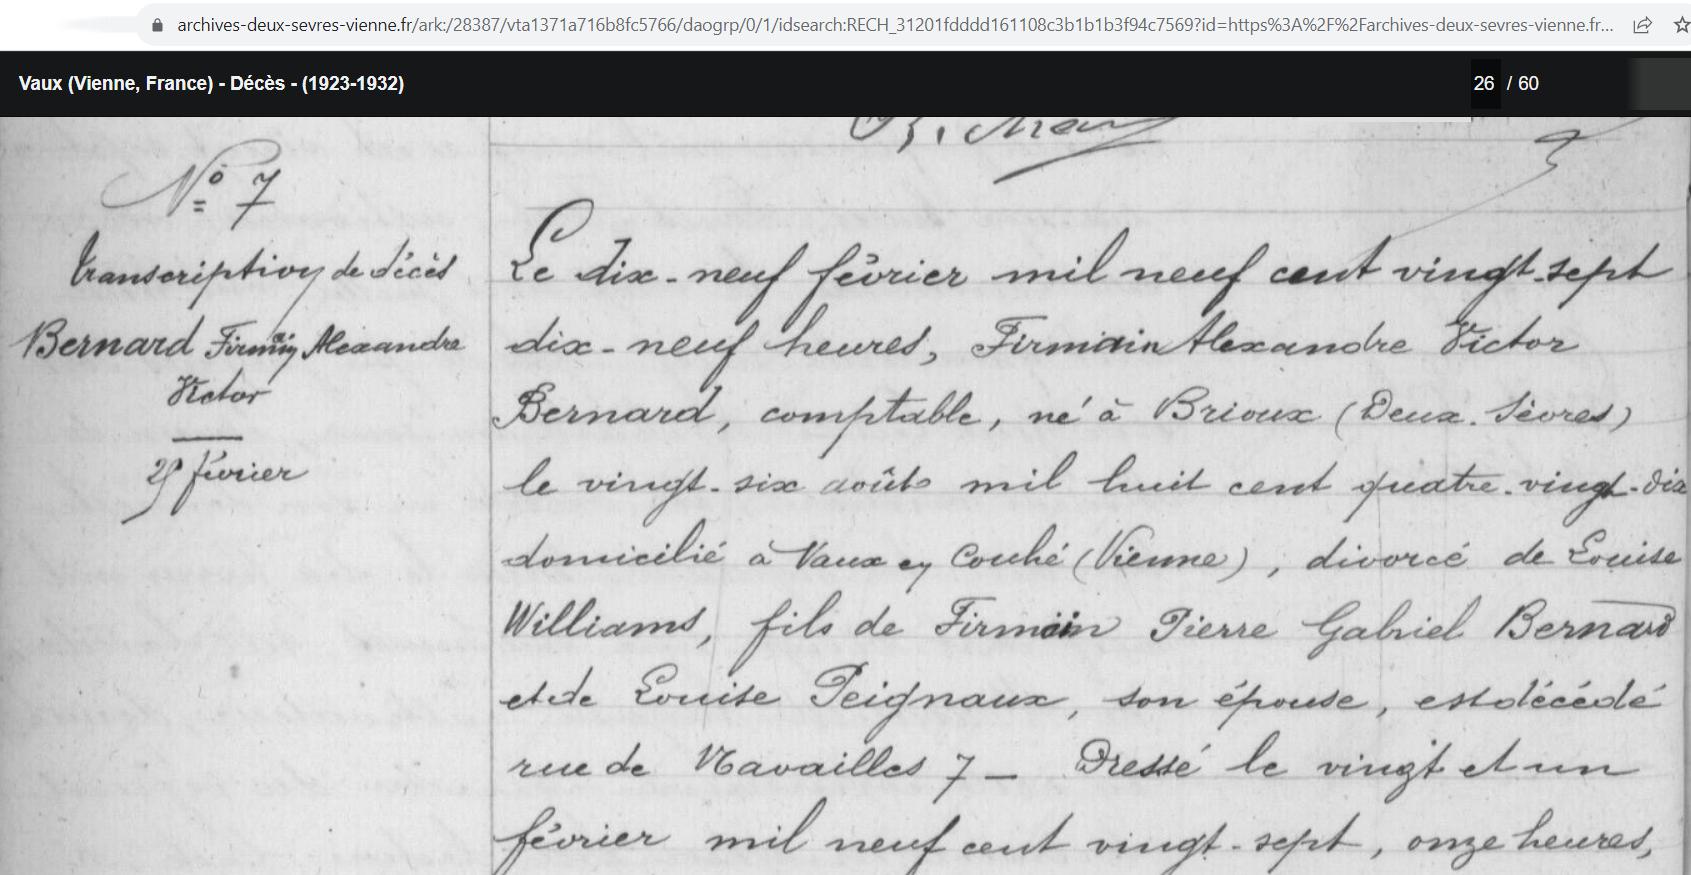 archives-deux-sevres-vienne.fr/ark:/28387/vta1371a716b8fc5766/daogrp/0/1/idsearch:RECH_31201fdddd161108c3b1b1b3f94c7569?id=https%3A%2F%2Farchives-deux-sevres-vienne.fr...
Vaux (Vienne, France) - Décès - (1923-1932)
26 / 60
N° 7
Transcription de décès
Bernard Firmin Alexandre
Victor
février
Le dix-neuf février mil neuf cent vingt-sept
dix-neuf heures, Firmain Alexandre Victor
Bernard, comptable, né à Brioux (Deux-Sèvres)
le vingt-six août mil huit cent quatre-vingt-dix
domicilié à Vaux en Couhé (Vienne), divorcé de Louise
Williams, fils de Firmin Pierre Gabriel Bernard
et de Louise Peignaux, son épouse, est décédé
rue de Navailles 7 — Dressé le vingt et un
février mil neuf cent vingt-sept, onze heures,